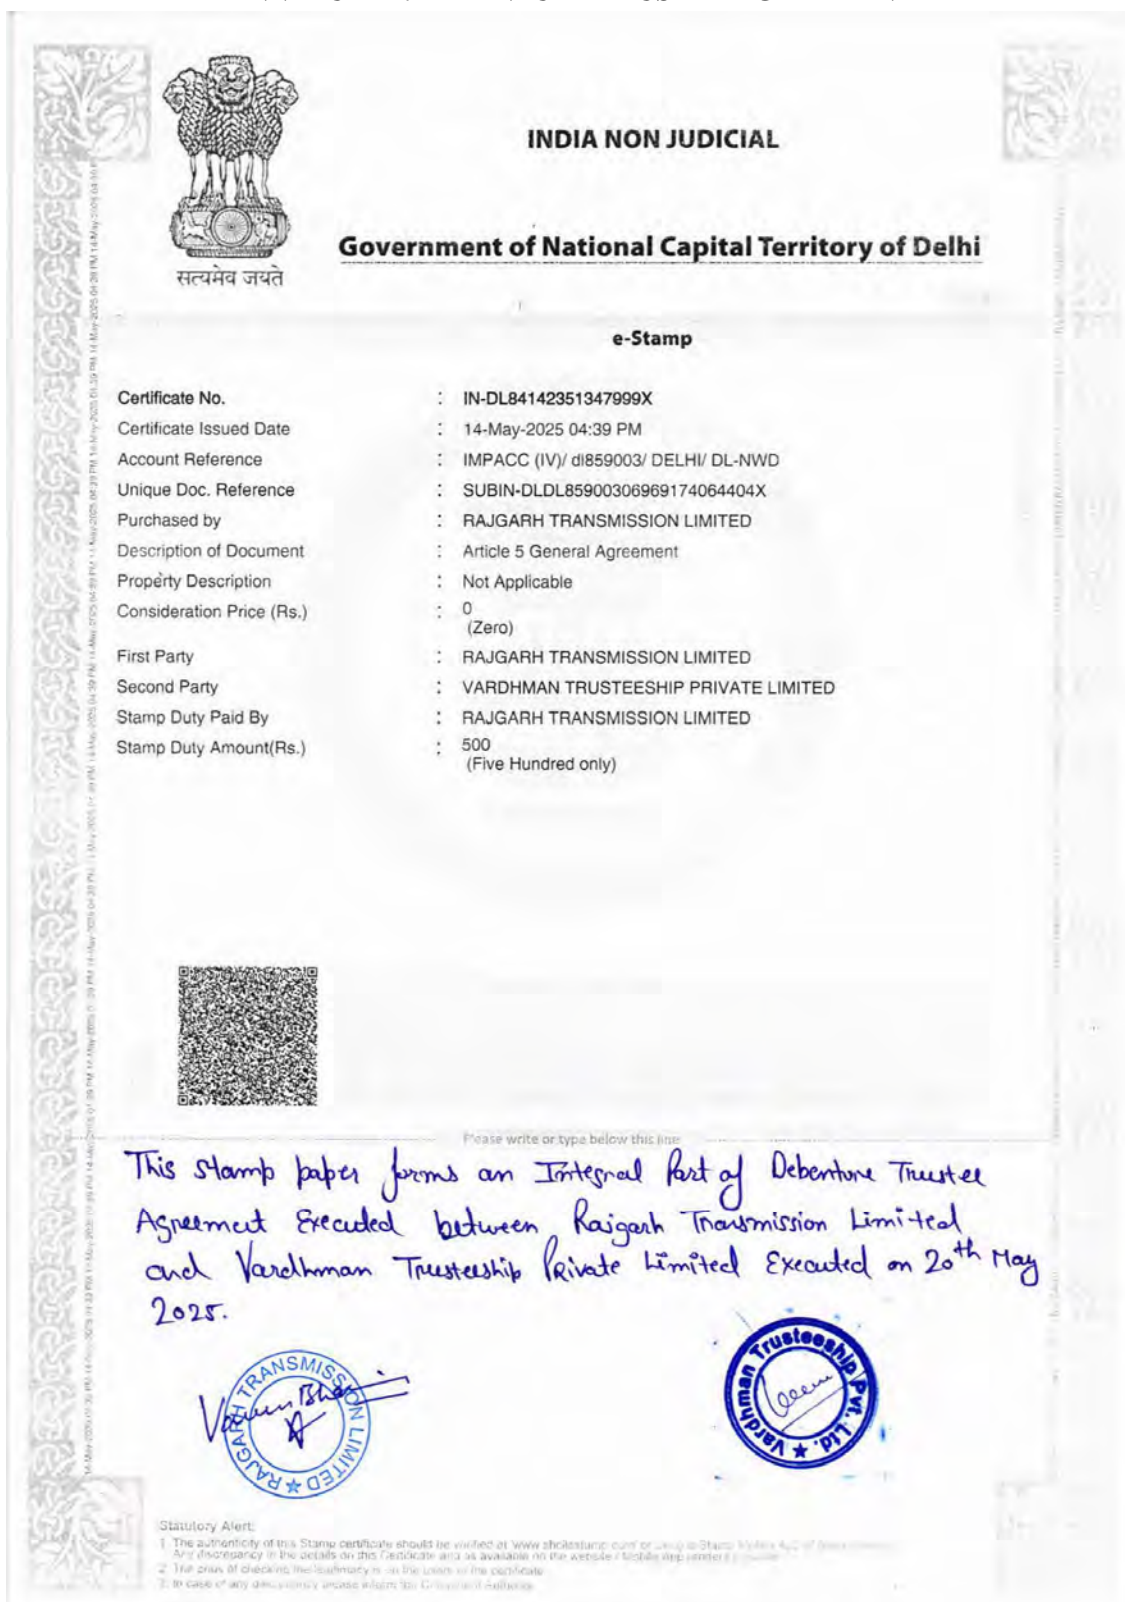 INDIA NON JUDICIAL
Government of National Capital Territory of Delhi
सत्यमेव जयते
e-Stamp
Certificate No. : IN-DL84142351347999X
Certificate Issued Date : 14-May-2025 04:39 PM
Account Reference : IMPACC (IV)/ dl859003/ DELHI/ DL-NWD
Unique Doc. Reference : SUBIN-DLDL85900306969174064404X
Purchased by : RAJGARH TRANSMISSION LIMITED
Description of Document : Article 5 General Agreement
Property Description : Not Applicable
Consideration Price (Rs.) : 0
(Zero)
First Party : RAJGARH TRANSMISSION LIMITED
Second Party : VARDHMAN TRUSTEESHIP PRIVATE LIMITED
Stamp Duty Paid By : RAJGARH TRANSMISSION LIMITED
Stamp Duty Amount(Rs.) : 500
(Five Hundred only)
Please write or type below this line
This stamp paper forms an Integral Part of Debenture Trustee
Agreement Executed between Rajgarh Transmission Limited
and Vardhman Trusteeship Private Limited Executed on 20th May
2025.
RAJGARH TRANSMISSION LIMITED
Vardhman Trusteeship Pvt. Ltd.
Statutory Alert:
1. The authenticity of this Stamp certificate should be verified at
Any discrepancy in the details on this Certificate and as available on the website / Mobile App renders
2. The onus of checking the legitimacy is on the users of the certificate
3. In case of any discrepancy please inform the Competent Authority